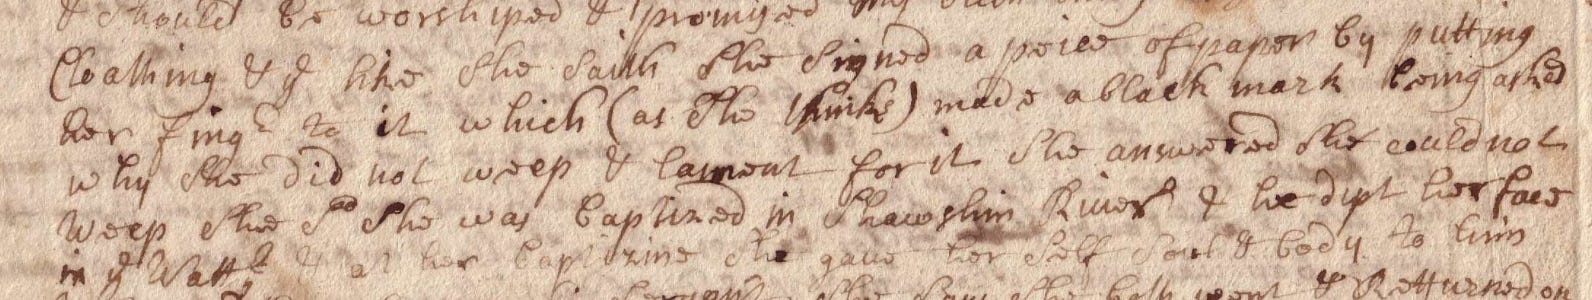 & should be worshiped & promised
Cloathing & ye like She Saith She Signed a peice of paper by putting
her fingr to it which (as She thinks) made a black mark being asked
why She did not weep & lament for it She answered She could not
weep She Sd She was baptized in Shawshin River & he dipt her face
in ye Wattr & at her baptizing She gave her Self Soul & body to him
She both went & Retturned on